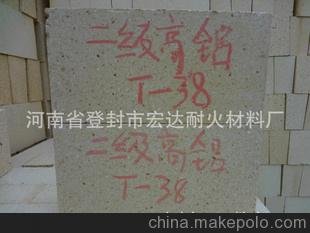 二级高铝
T-38
河南省登封市宏达耐火材料厂
二级高铝
T-38
china.makepolo.com